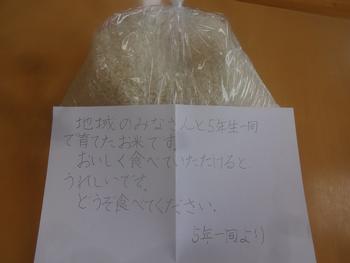 地域のみなさんと5年生一同
で育てたお米です。
おいしく食べていただけると
うれしいです。
どうぞ食べてください。
5年一同より